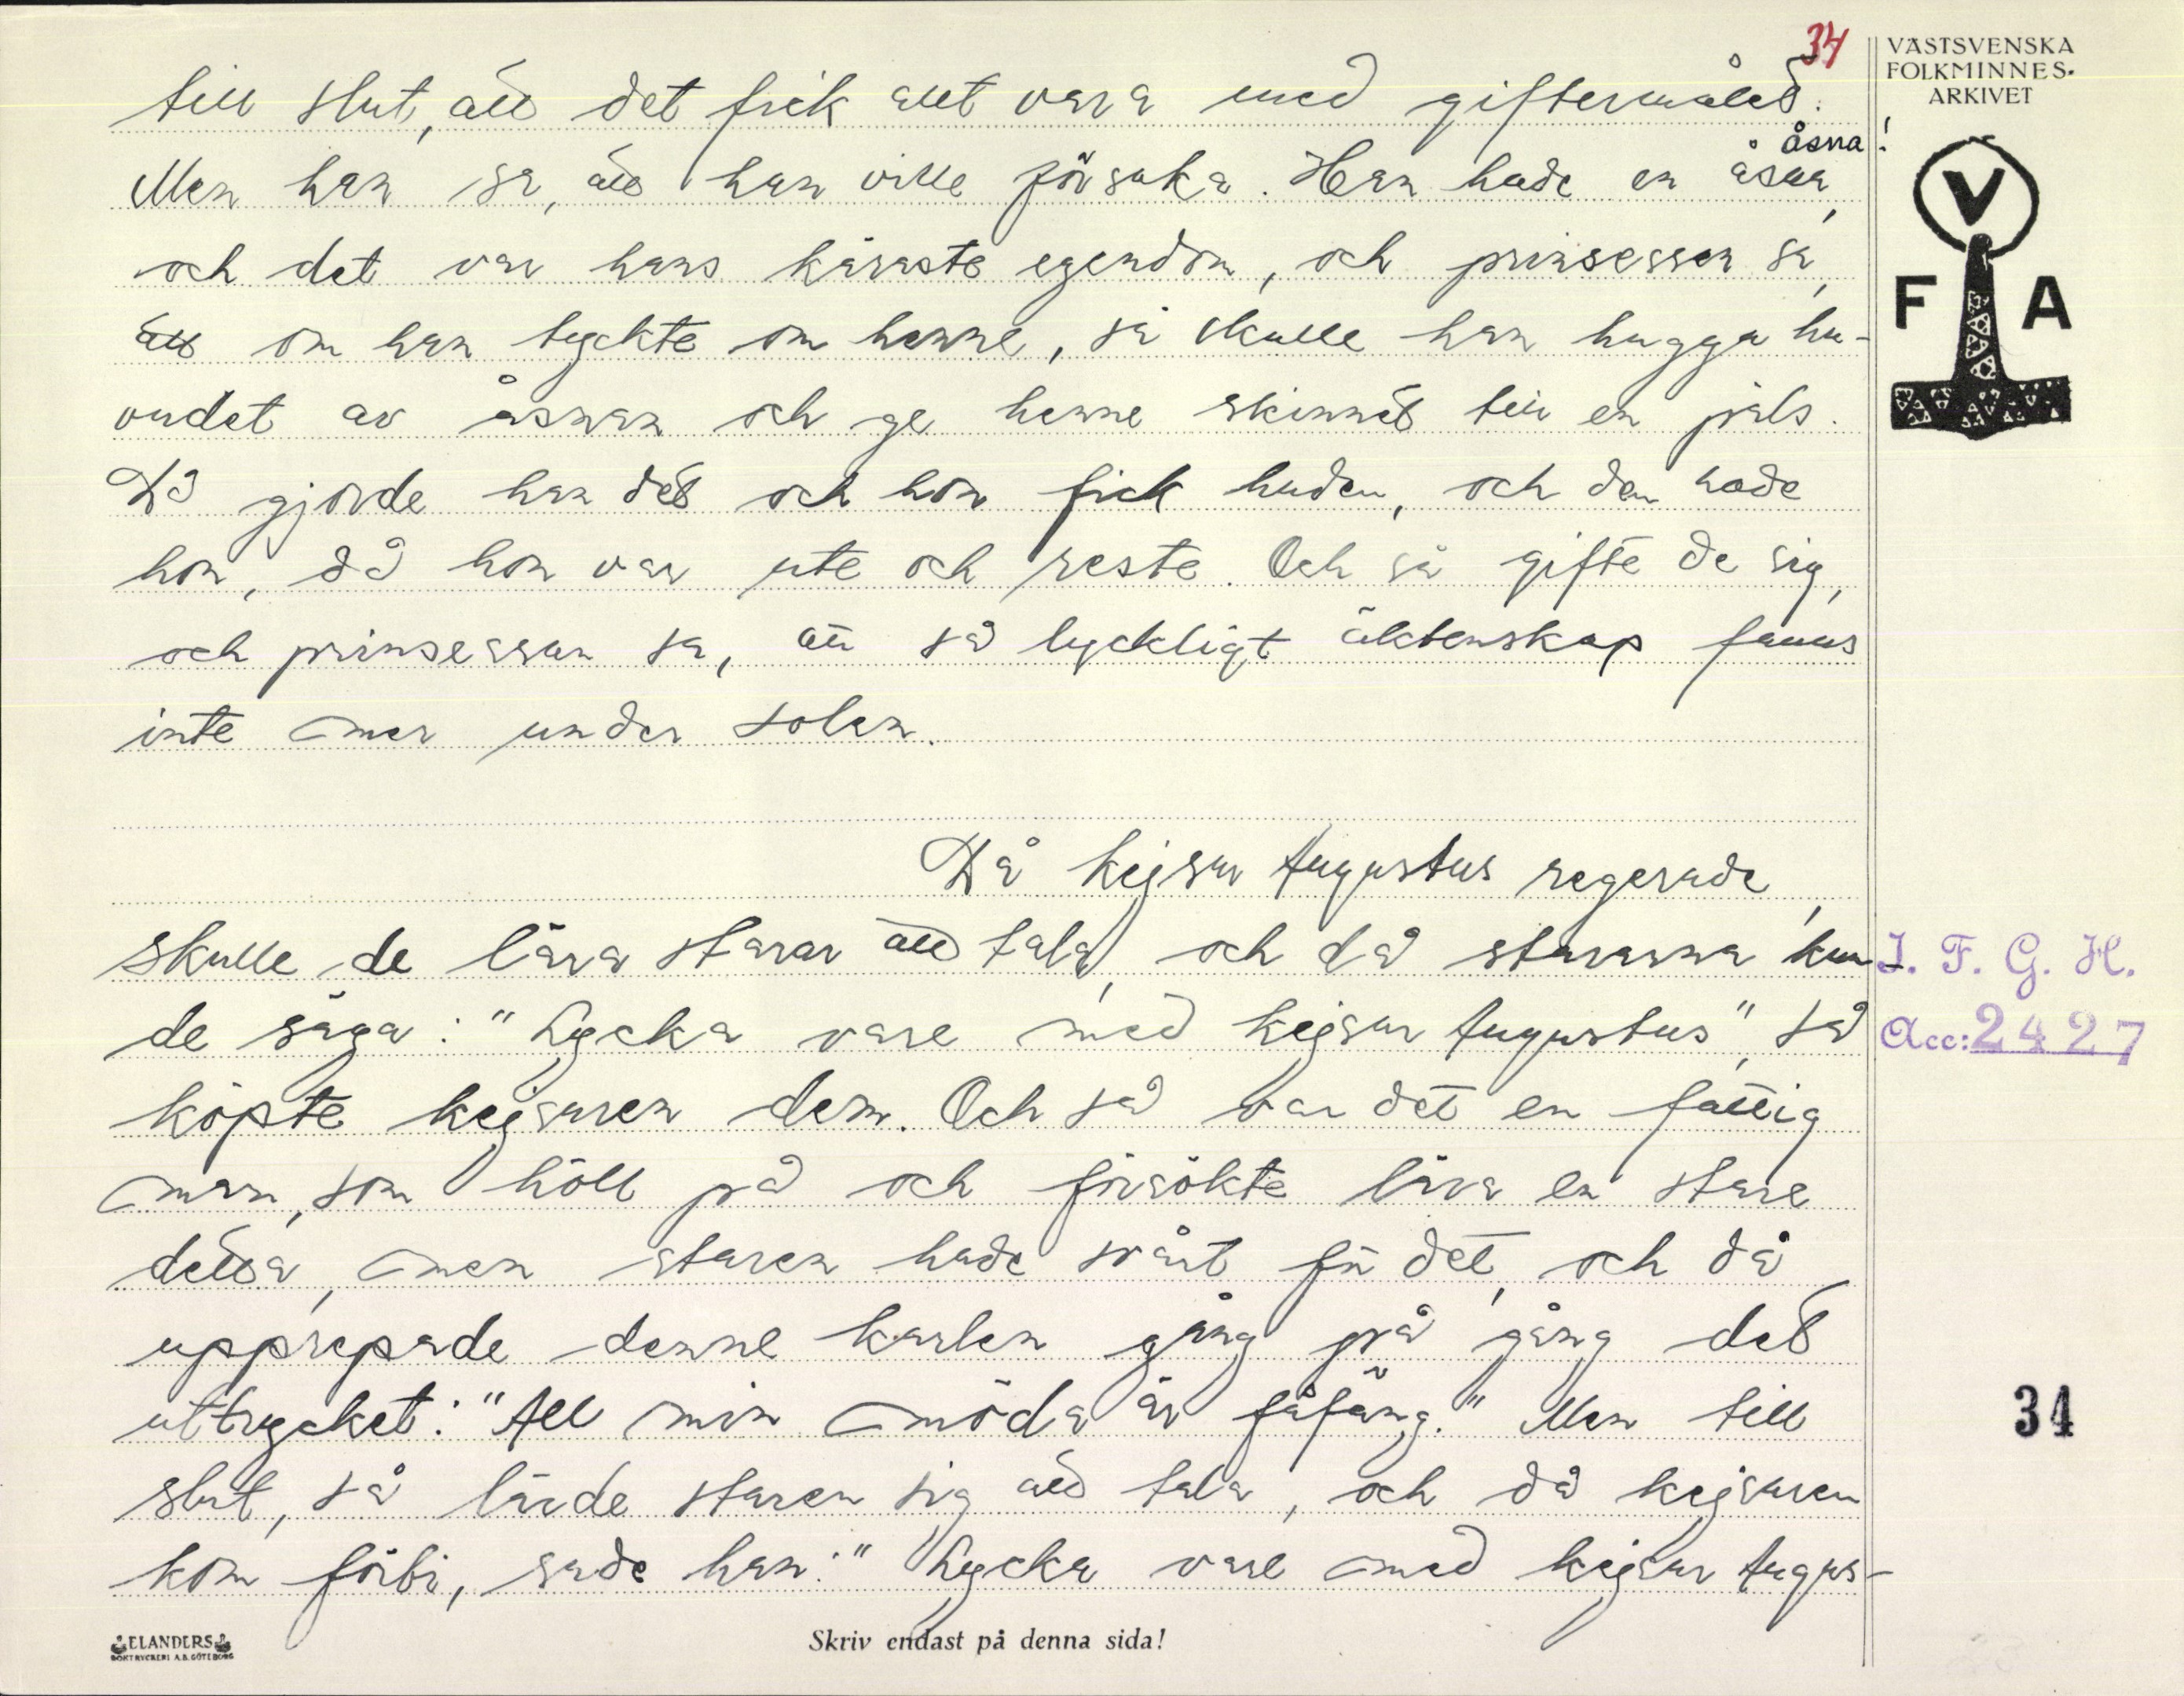 34
VÄSTSVENSKA
FOLKMINNES-
ARKIVET
till slut, att det fick allt vara med giftermålet.
åsna!
Men han sa, att han ville försaka. Han hade en åsna,
och det var hans käraste egendom, och prinsessan sa,
att om han tyckte om henne, så skulle han hugga hu-
vudet av åsnan och ge henne skinnet till en päls.
Då gjorde han det och hon fick huden, och den hade
hon, då hon var ute och reste. Och så gifte de sig,
och prinsessan sa, att så lyckligt äktenskap fanns
inte mer under solen.
V
F A
Då kejsar Augustus regerade,
skulle de lära starar att tala, och då stararna kun-
de säga: "Lycka vare med kejsar Augustus", så
köpte kejsaren dem. Och så var det en fattig
man, som höll på och försökte lära en stare
detta, men staren hade svårt för det, och då
upprepade denne karlen gång på gång det
uttrycket: "All min möda är fåfäng." Men till
slut, så lärde staren sig att tala, och då kejsaren
kom förbi, sade han: "Lycka vare med kejsar Augus-
I. F. G. H.
Acc: 2427
34
ELANDERS
BOKTRYCKERI A.B. GÖTEBORG
Skriv endast på denna sida!